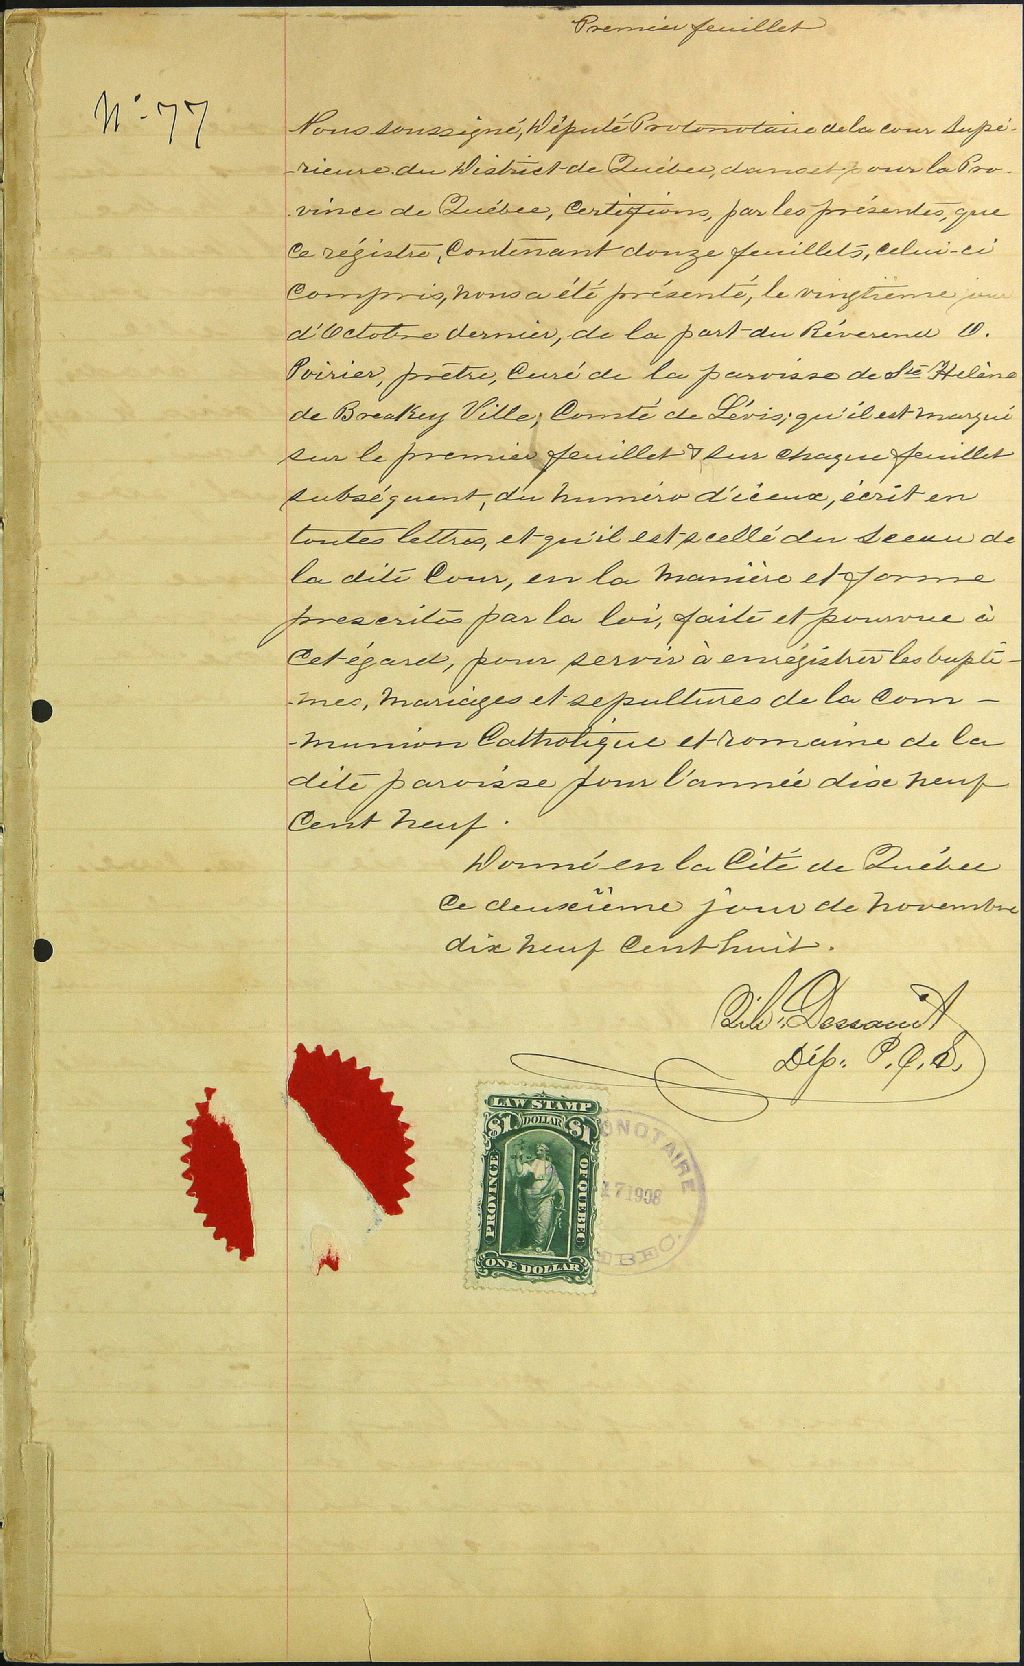 Premier feuillet
N° 77
Nous soussigné, Député Protonotaire de la cour Supé-
-rieure du District de Québec, dans et pour la Pro-
-vince de Québec, certifions, par les présentes, que
ce régistre, contenant douze feuillets, celui-ci
compris, nous a été présenté, le vingtième jour
d'Octobre dernier, de la part du Révérend O.
Poirier, prêtre, Curé de la paroisse de Ste Hélène
de Breakey Ville, Comté de Lévis; qu'il est marqué
sur le premier feuillet & sur chaque feuillet
subséquent, du numéro d'iceux, écrit en
toutes lettres, et qu'il est scellé du sceau de
la dite Cour, en la manière et forme
prescrites par la loi, faite et pourvue à
cet égard, pour servir à enrégistrer les baptê-
-mes, mariages et sépultures de la com-
-munion Catholique et romaine de la
dite paroisse pour l'année dix neuf
cent neuf.
Donné en la Cité de Québec
ce deuxième jour de novembre
dix neuf cent huit.
Dessault
Dép. P.C.S.
LAW STAMP
$1 DOLLAR $1
PROVINCE OF QUEBEC
ONE DOLLAR
ONOTAIRE
17 1908
EBEC.